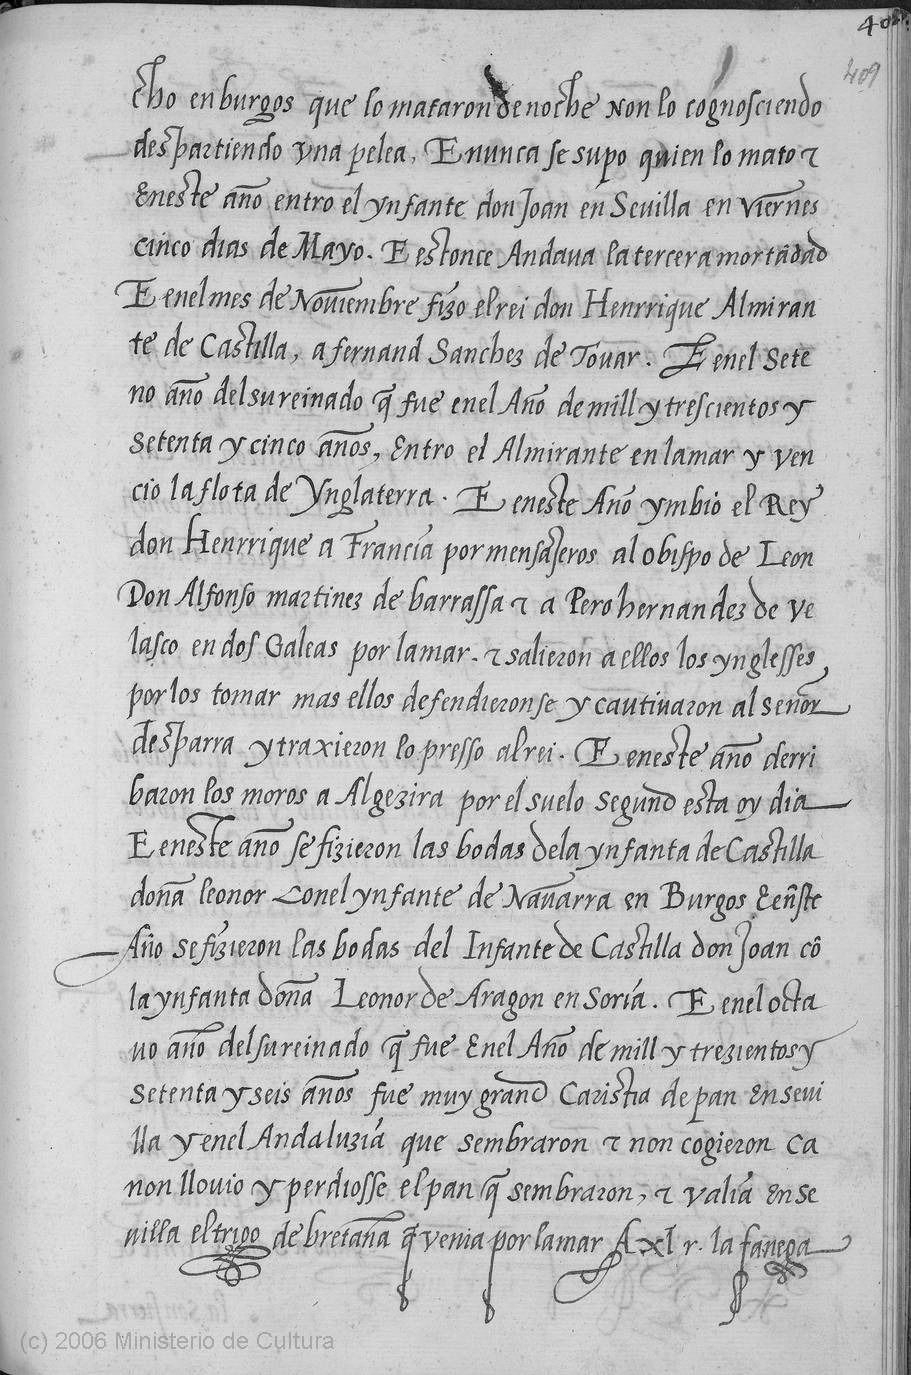 40
409
cho en burgos que lo mataron de noche Non lo cognosciendo
despartiendo vna pelea, E nunca se supo quien lo mato τ
Eneste año entro el ynfante don Joan en Sevilla en viernes
cinco dias de Mayo. E estonce Andaua la tercera mortãdad
E enel mes de Nouiembre fizo el rei don Henrrique Almiran
te de Castilla, a fernand Sanchez de Touar. E enel Sete
no año del su reinado q̃ fue enel Año de mill y trescientos y
setenta y cinco años, Entro el Almirante en la mar y ven
cio la flota de Ynglaterra. E eneste Año ymbio el Rey
don Henrrique a Francia por mensajeros al obispo de Leon
Don Alfonso martinez de barrassa τ a Pero hernandez de Ve
lasco en dos Galeas por la mar. τ salieron a ellos los ynglesses
por los tomar mas ellos defendieronse y cautiuaron al señor
desparra y traxieron lo presso al rei. E eneste año derri
baron los moros a Algezira por el suelo segund esta oy dia
E eneste año se fizieron las bodas dela ynfanta de Castilla
doña leonor Conel ynfante de Nauarra en Burgos E eñste
Año se fizieron las bodas del Infante de Castilla don Joan cõ
la ynfanta doña Leonor de Aragon en Soria. E enel octa
uo año del su reinado q̃ fue Enel Año de mill y trezientos y
setenta y seis años fue muy grand Caristia de pan En sevi
lla y enel Andaluzia que sembraron τ non cogieron ca
non llouio y perdiosse el pan q̃ sembraron, τ valia En Se
uilla el trigo de bretaña q̃ venia por la mar A xl r. la fanega
(c) 2006 Ministerio de Cultura